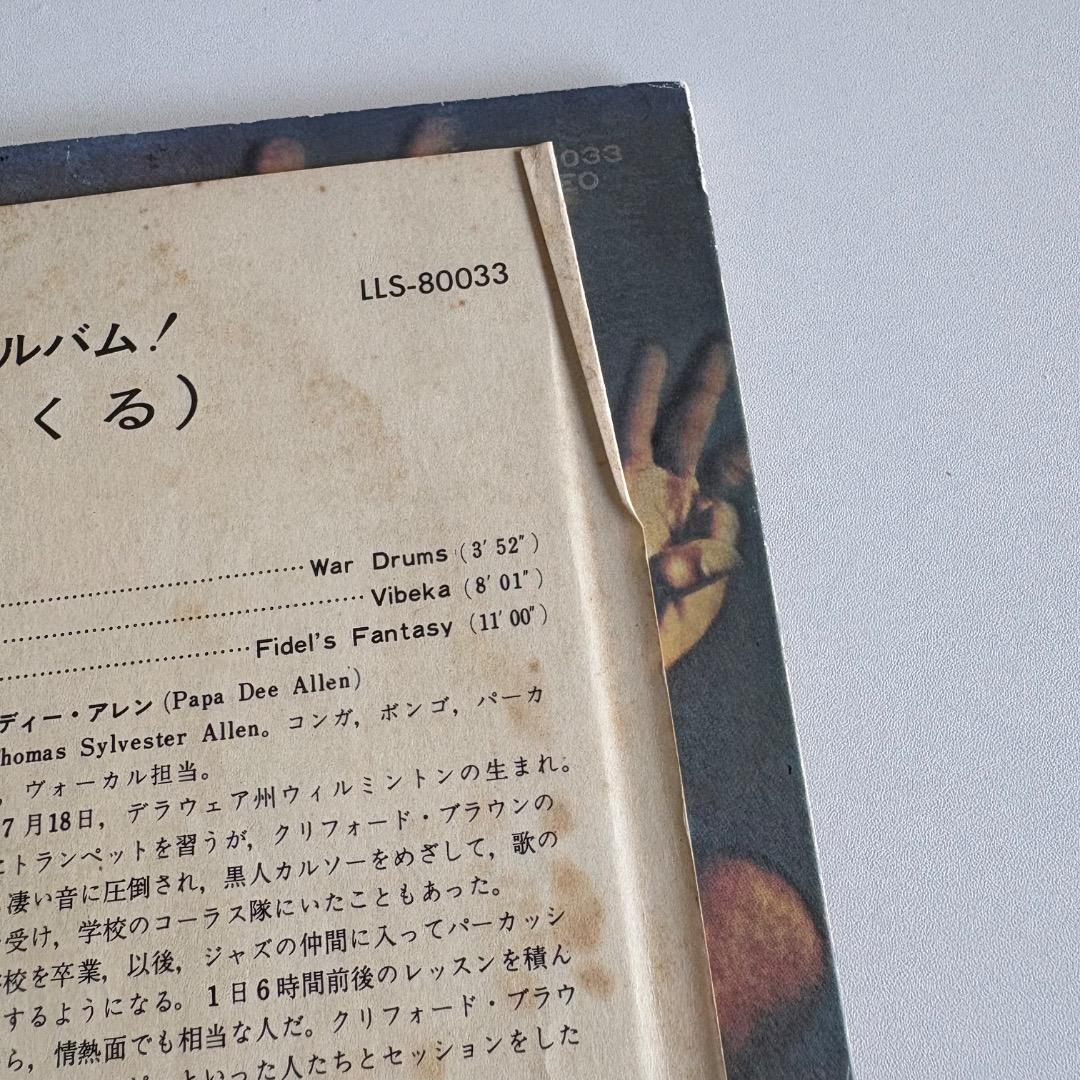 033
EO
LLS-80033
ルバム!
くる)
War Drums (3′52″)
Vibeka (8′01″)
Fidel's Fantasy (11′00″)
ディー・アレン (Papa Dee Allen)
homas Sylvester Allen。コンガ, ボンゴ, パーカ
, ヴォーカル担当。
7月18日, デラウェア州ウィルミントンの生まれ。
にトランペットを習うが, クリフォード・ブラウンの
凄い音に圧倒され, 黒人カルソーをめざして, 歌の
受け, 学校のコーラス隊にいたこともあった。
校を卒業, 以後, ジャズの仲間に入ってパーカッシ
するようになる。1日6時間前後のレッスンを積ん
ら, 情熱面でも相当な人だ。クリフォード・ブラウ
といった人たちとセッションをした